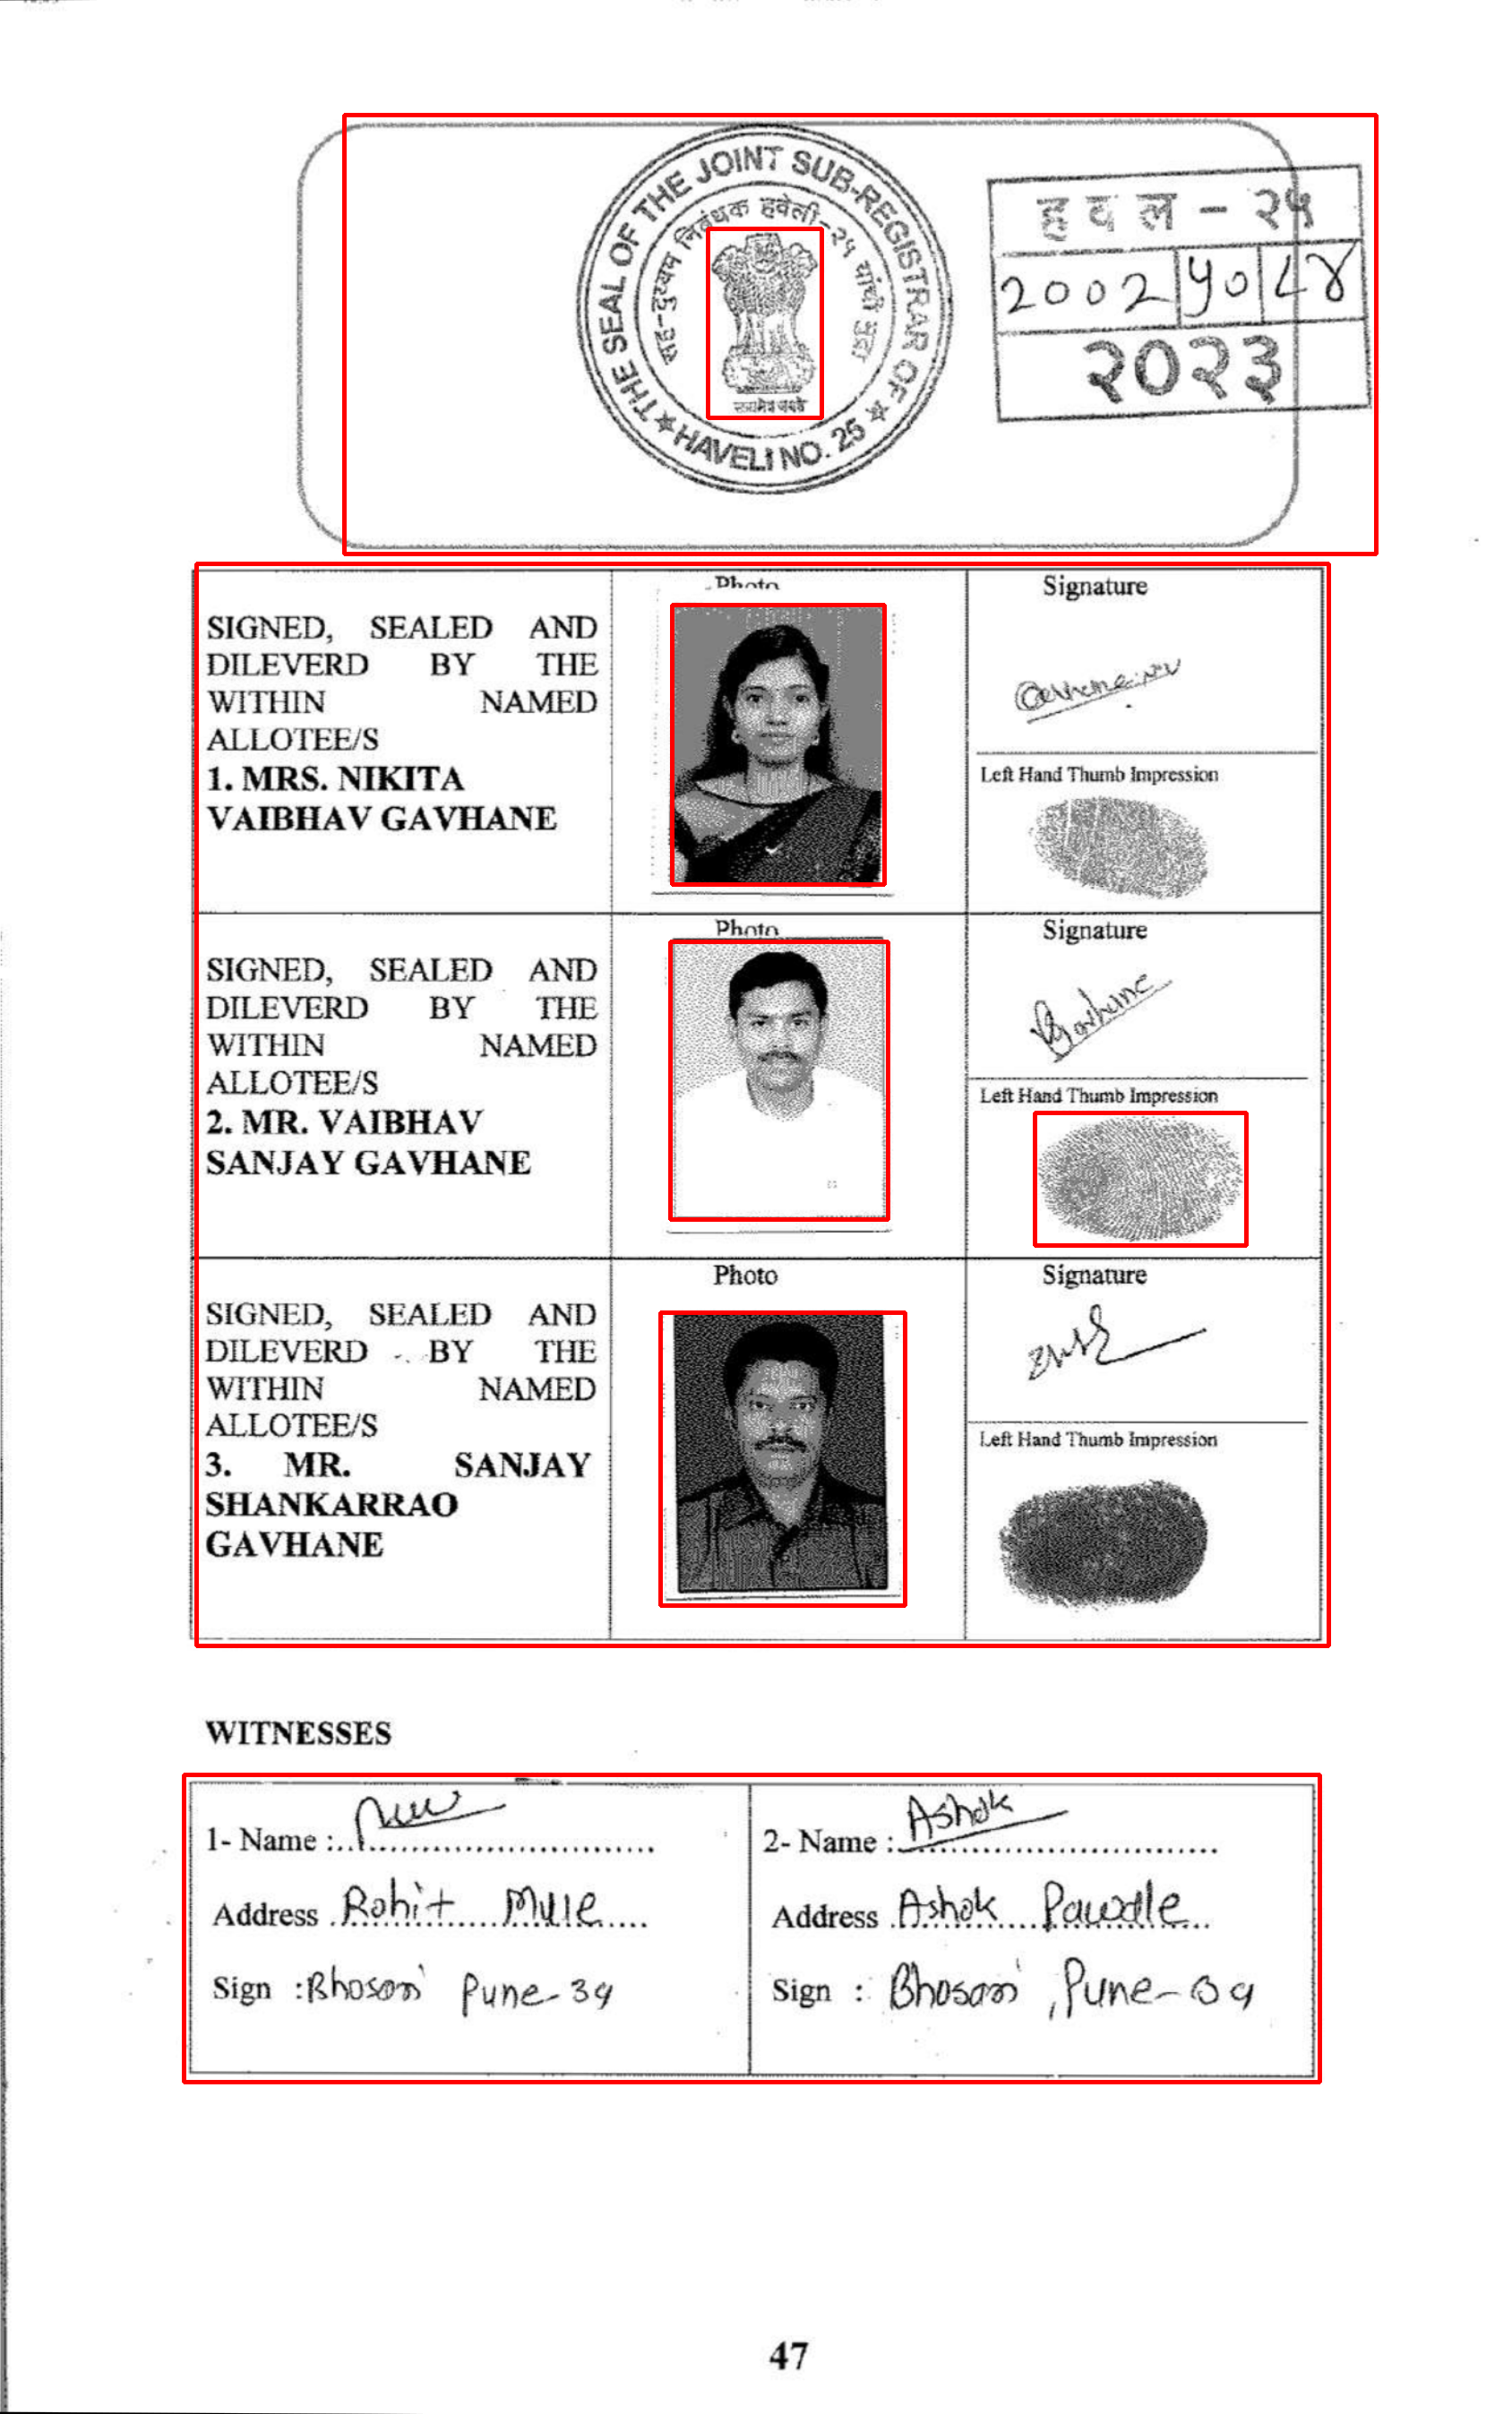 THE SEAL OF THE JOINT SUB-REGISTRAR OF
★ HAVELI NO. 25 ★
सह-दुय्यम निबंधक हवेली-२५ यांची मुद्रा
सत्यमेव जयते
हवल - २५
2002 | ५० | ८४
२०२३
Photo
Signature
SIGNED, SEALED AND
DILEVERD BY THE
WITHIN NAMED
ALLOTEE/S
1. MRS. NIKITA
VAIBHAV GAVHANE
Left Hand Thumb Impression
Photo
Signature
SIGNED, SEALED AND
DILEVERD BY THE
WITHIN NAMED
ALLOTEE/S
2. MR. VAIBHAV
SANJAY GAVHANE
Gavhane
Left Hand Thumb Impression
Photo
Signature
SIGNED, SEALED AND
DILEVERD BY THE
WITHIN NAMED
ALLOTEE/S
3. MR. SANJAY
SHANKARRAO
GAVHANE
Left Hand Thumb Impression
WITNESSES
1- Name :
Address Rohit Mule
Sign : Bhosari Pune-39
2- Name : Ashok
Address Ashok
Sign : Bhosari, Pune-39
47